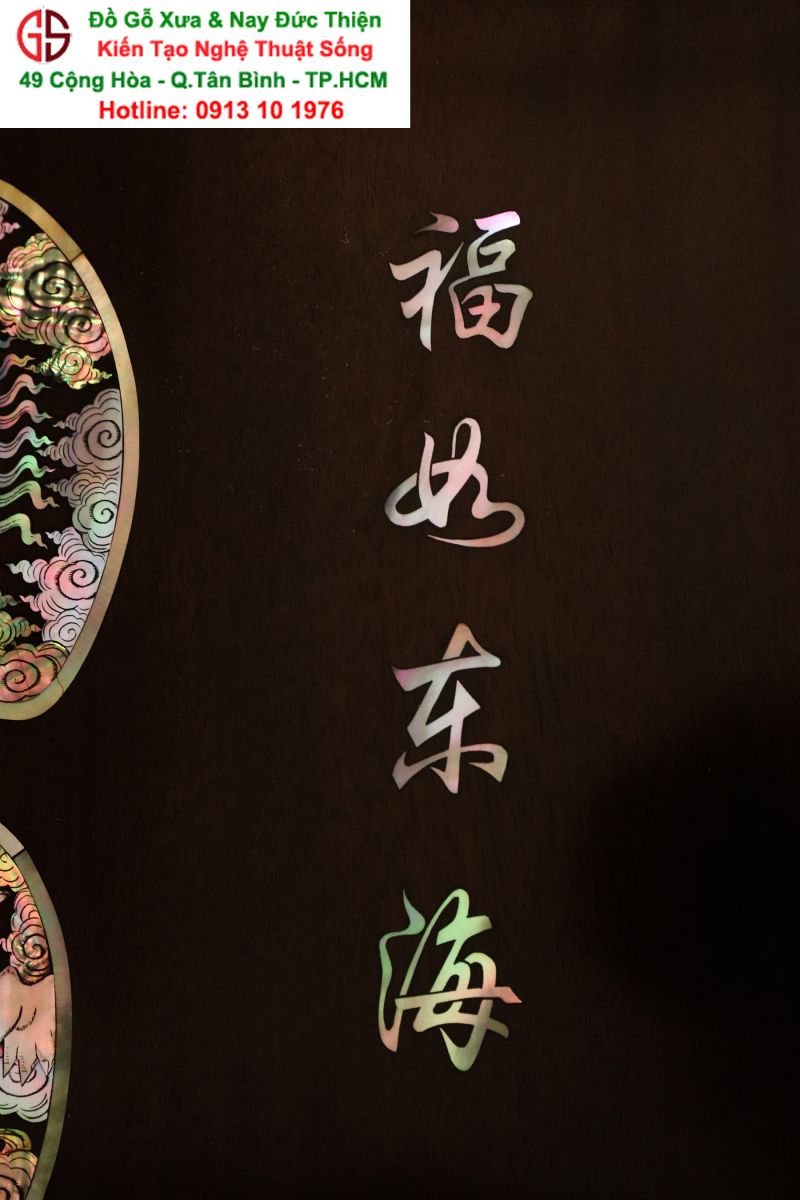 GS
Đồ Gỗ Xưa & Nay Đức Thiện
Kiến Tạo Nghệ Thuật Sống
49 Cộng Hòa - Q.Tân Bình - TP.HCM
Hotline: 0913 10 1976
福如东海